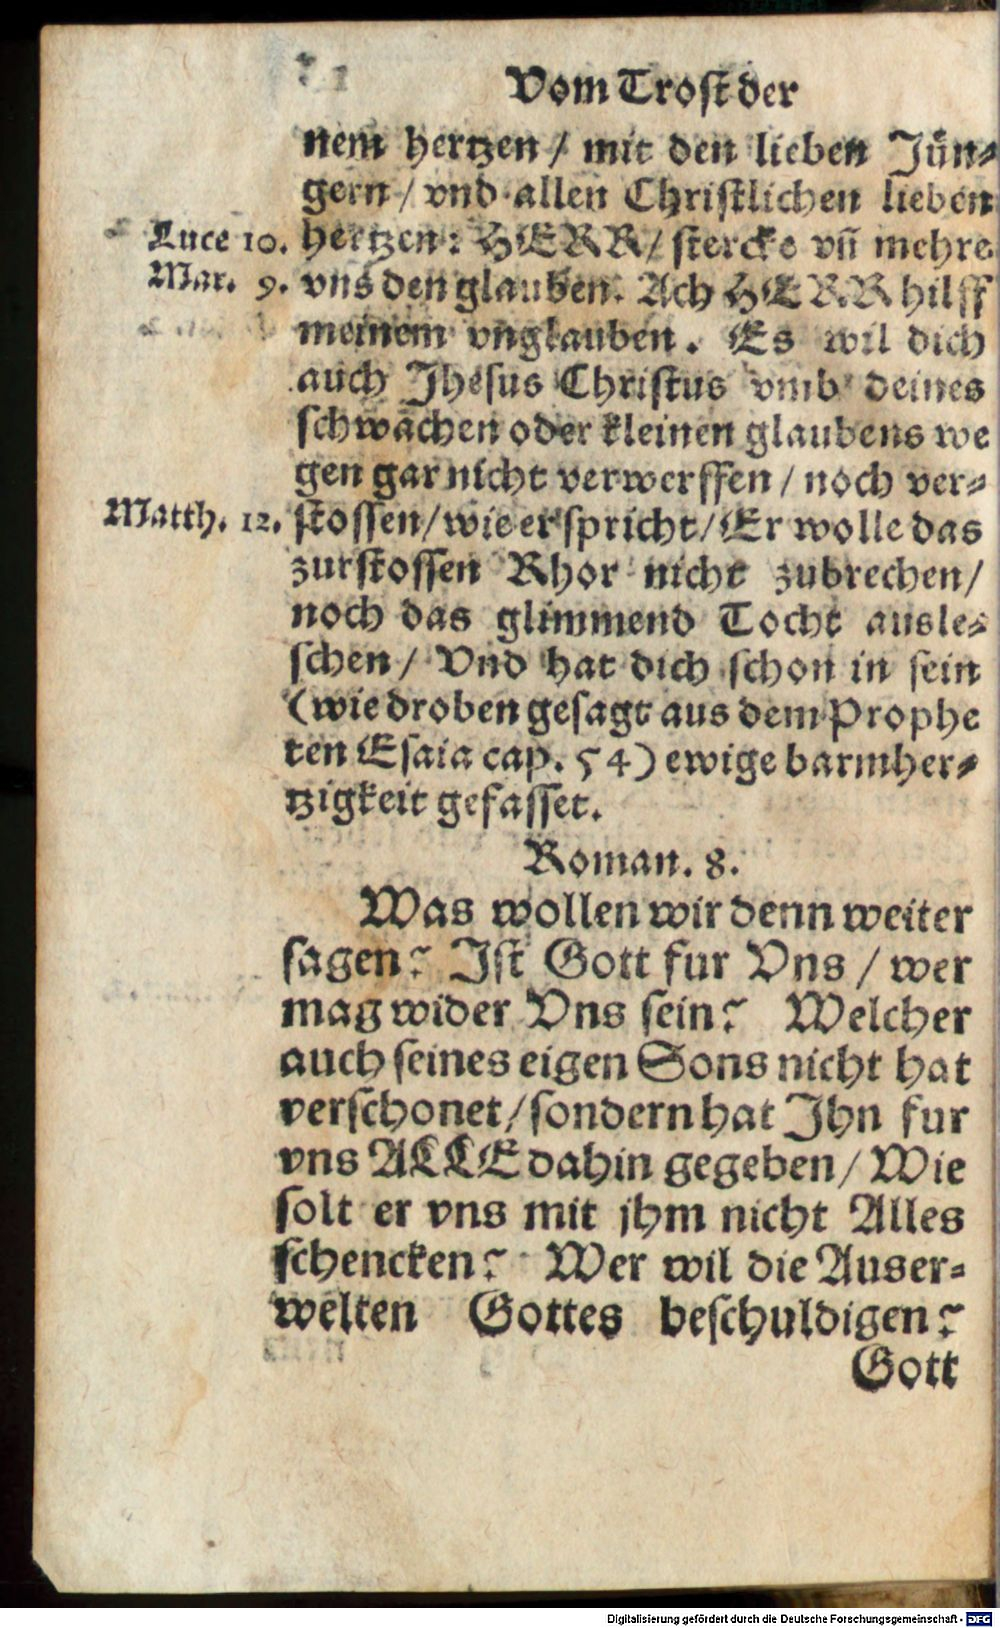 Vom Trost der
nem hertzen / mit den lieben Jün-
gern / vnd allen Christlichen lieben
Luce 10. hertzen: HERR / stercke vñ mehre
Mar. 9. vns den glauben. Ach HERR hilff
meinem vnglauben. Es wil dich
auch Jhesus Christus vmb deines
schwachen oder kleinen glaubens we
gen gar nicht verwerffen / noch ver-
Matth. 12. stossen / wie er spricht / Er wolle das
zurstossen Rhor nicht zubrechen /
noch das glimmend Tocht ausle-
schen / Vnd hat dich schon in sein
(wie droben gesagt aus dem Prophe
ten Esaia cap. 54) ewige barmher-
tzigkeit gefasset.
Roman. 8.
Was wollen wir denn weiter
sagen? Ist Gott fur Vns / wer
mag wider Vns sein? Welcher
auch seines eigen Sons nicht hat
verschonet / sondern hat Jhn fur
vns ALLE dahin gegeben / Wie
solt er vns mit jhm nicht Alles
schencken? Wer wil die Auser-
welten Gottes beschuldigen?
Gott
Digitalisierung gefördert durch die Deutsche Forschungsgemeinschaft - DFG